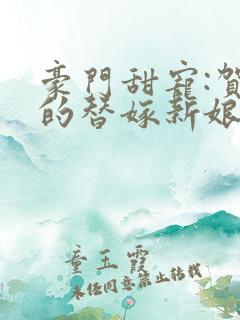 豪門甜寵:賀
的替嫁新娘
童玉霞
未经同意禁止转载